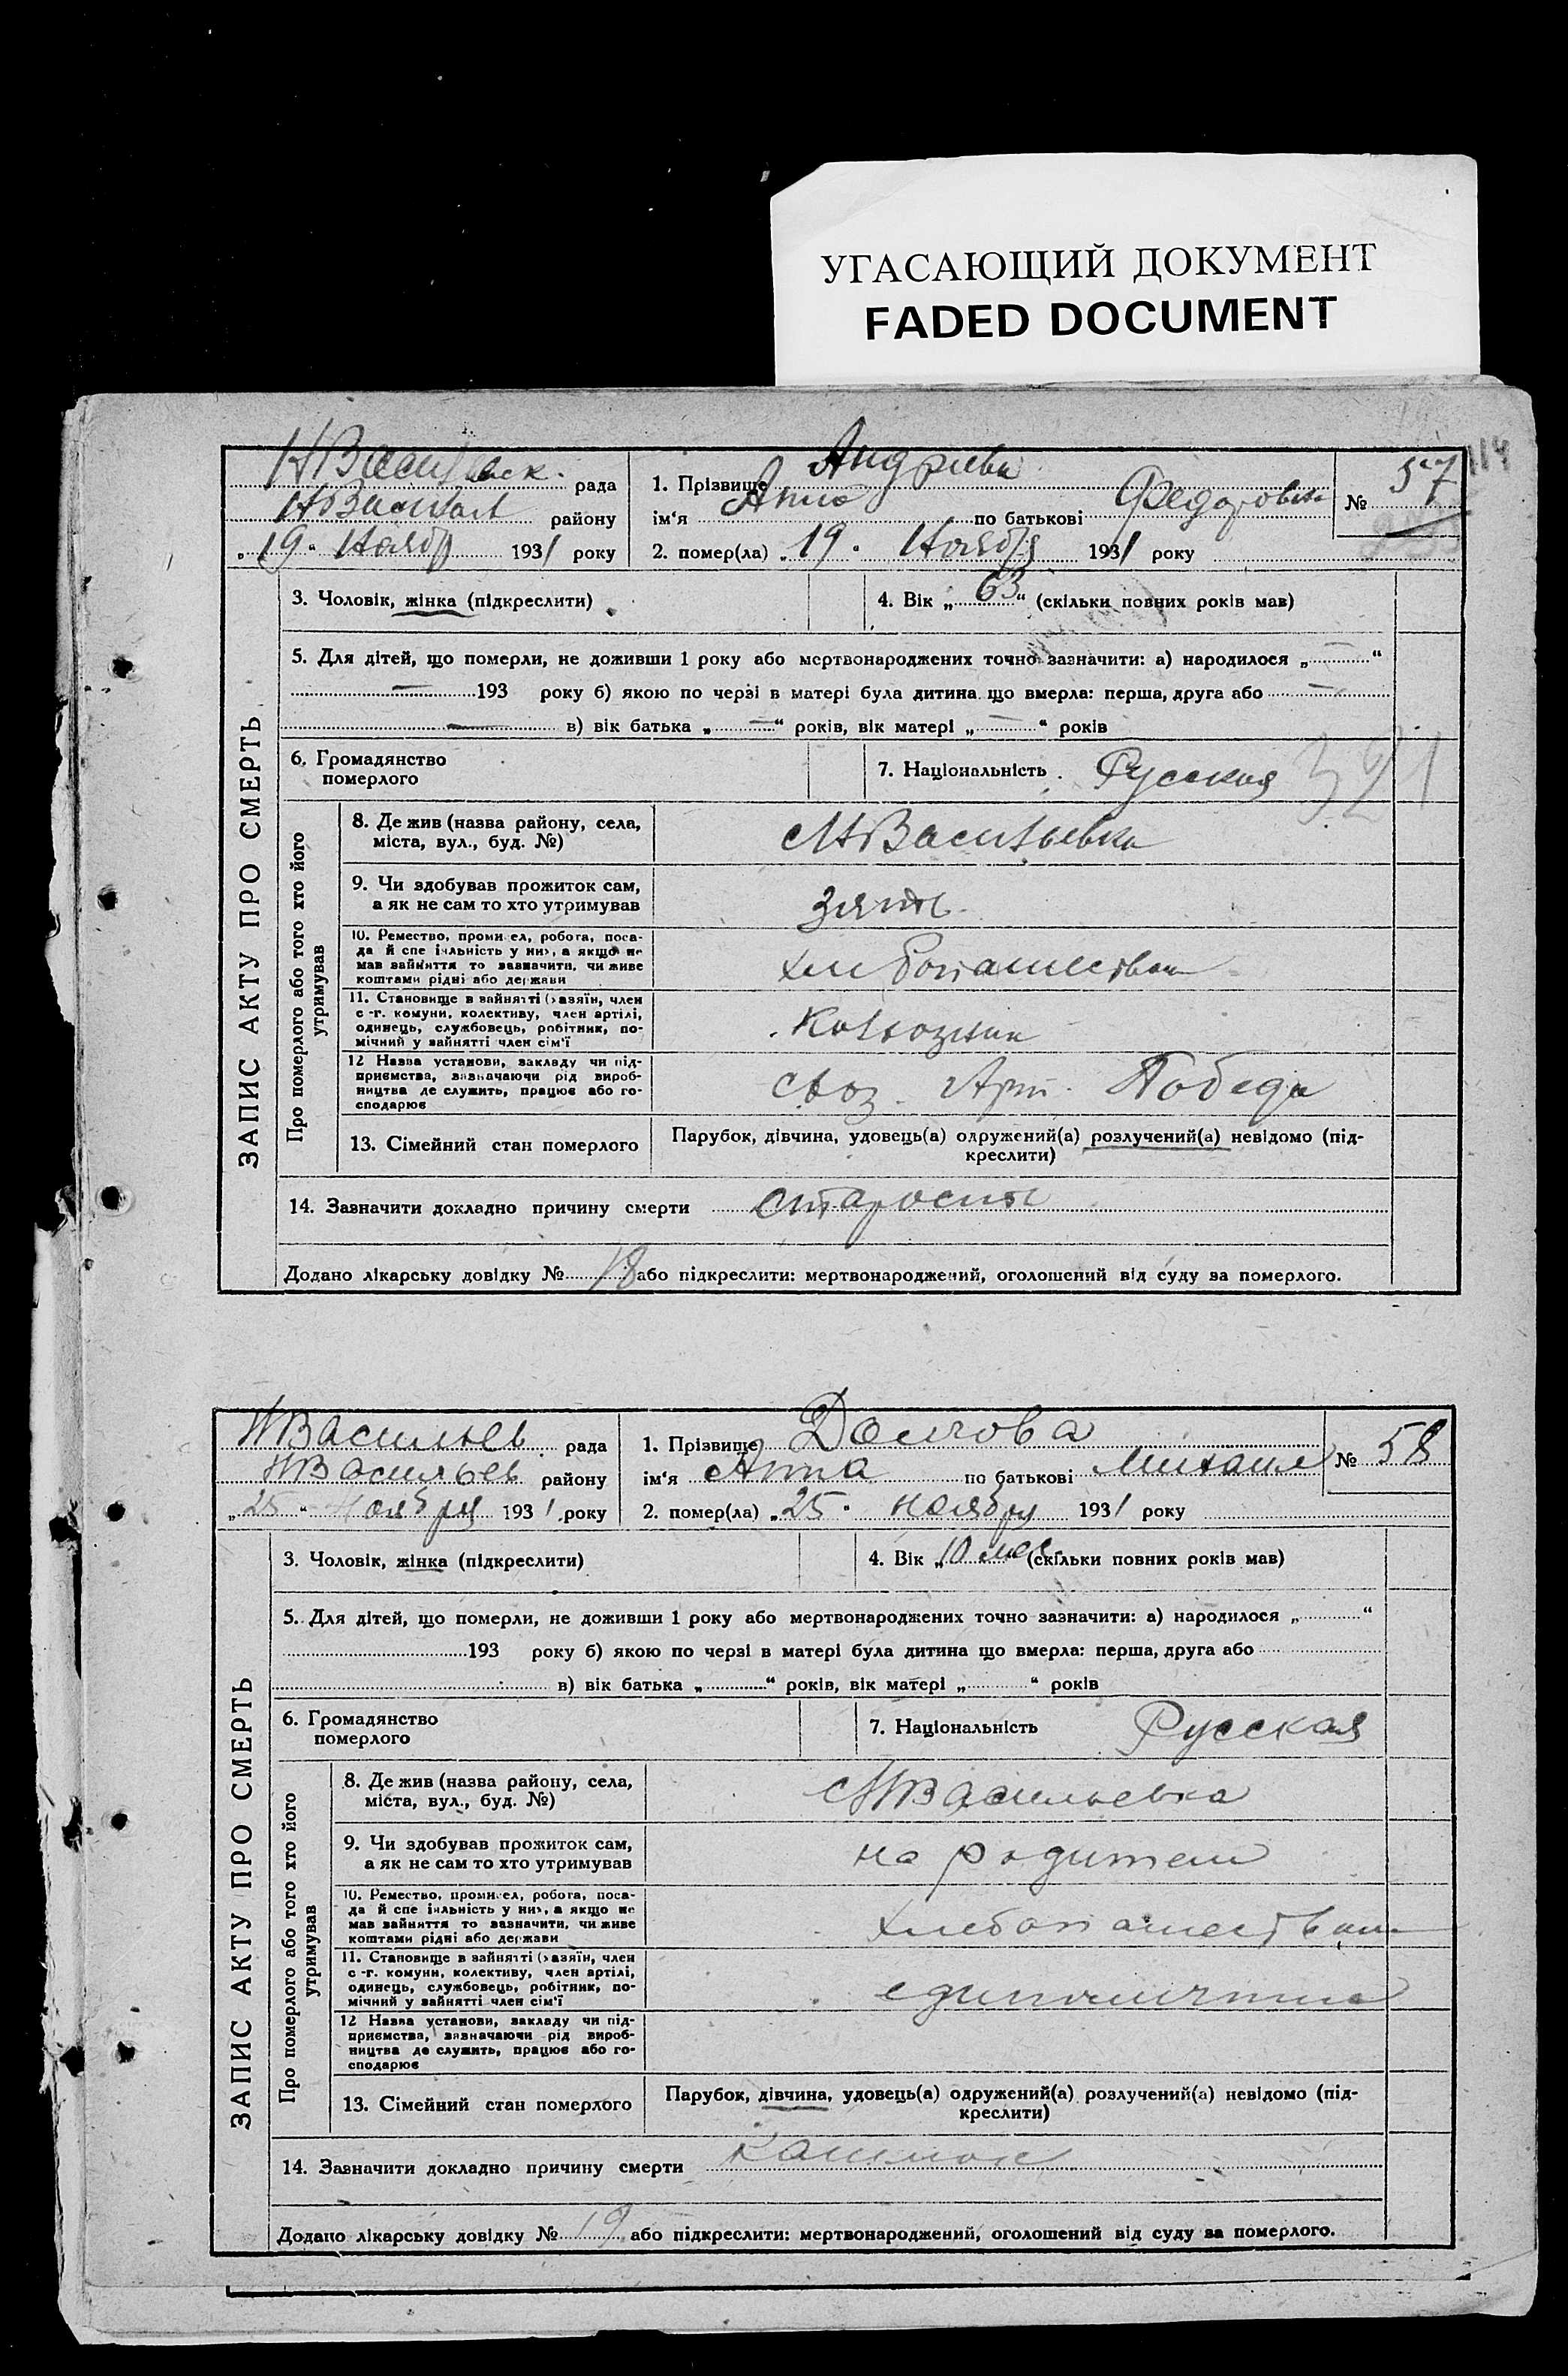 УГАСАЮЩИЙ ДОКУМЕНТ
FADED DOCUMENT
114
рада
1. Прізвище
№ 57
району
ім'я Анна по батькові Федоровна
„19“ Ноября 1931 року
2. помер(ла) „19“ Ноября 1931 року
ЗАПИС АКТУ ПРО СМЕРТЬ
3. Чоловік, жінка (підкреслити)
4. Вік „63“ (скільки повних років мав)
5. Для дітей, що померли, не доживши 1 року або мертвонароджених точно зазначити: а) народилося „—“
— 193 року б) якою по черзі в матері була дитина що вмерла: перша, друга або —
— в) вік батька „—“ років, вік матері „—“ років
6. Громадянство
померлого
7. Національність Русская
Про померлого або того хто його
утримував
8. Де жив (назва району, села,
міста, вул., буд. №)
НВасильевка
9. Чи здобував прожиток сам,
а як не сам то хто утримував
зять
10. Ремество, промисел, робота, поса-
да й спеціяльність у ній, а якщо не
мав зайняття то зазначити, чи живе
коштами рідні або держави
11. Становище в зайнятті (хазяїн, член
с.-г. комуни, колективу, член артілі,
одинець, службовець, робітник, по-
мічний у зайнятті член сім'ї
Колхозник
12 Назва установи, закладу чи під-
приємства, зазначаючи рід вироб-
ництва де служить, працює або го-
сподарює
Арт. Победа
13. Сімейний стан померлого
Парубок, дівчина, удовець(а) одружений(а) розлучений(а) невідомо (під-
креслити)
14. Зазначити докладно причину смерти старость
Додано лікарську довідку № 18 або підкреслити: мертвонароджений, оголошений від суду за померлого.
НВасильев рада
1. Прізвище Долгова
№ 58
НВасильев району
ім'я Анна по батькові Михаил
„25“ ноября 1931 року
2. помер(ла) „25“ ноября 1931 року
ЗАПИС АКТУ ПРО СМЕРТЬ
3. Чоловік, жінка (підкреслити)
4. Вік „10 мес“ (скільки повних років мав)
5. Для дітей, що померли, не доживши 1 року або мертвонароджених точно зазначити: а) народилося „“
193 року б) якою по черзі в матері була дитина що вмерла: перша, друга або
в) вік батька „“ років, вік матері „“ років
6. Громадянство
померлого
7. Національність Русская
Про померлого або того хто його
утримував
8. Де жив (назва району, села,
міста, вул., буд. №)
НВасильевка
9. Чи здобував прожиток сам,
а як не сам то хто утримував
на родители
10. Ремество, промисел, робота, поса-
да й спеціяльність у ній, а якщо не
мав зайняття то зазначити, чи живе
коштами рідні або держави
11. Становище в зайнятті (хазяїн, член
с.-г. комуни, колективу, член артілі,
одинець, службовець, робітник, по-
мічний у зайнятті член сім'ї
12 Назва установи, закладу чи під-
приємства, зазначаючи рід вироб-
ництва де служить, працює або го-
сподарює
13. Сімейний стан померлого
Парубок, дівчина, удовець(а) одружений(а) розлучений(а) невідомо (під-
креслити)
14. Зазначити докладно причину смерти
Додано лікарську довідку № 19 або підкреслити: мертвонароджений, оголошений від суду за померлого.